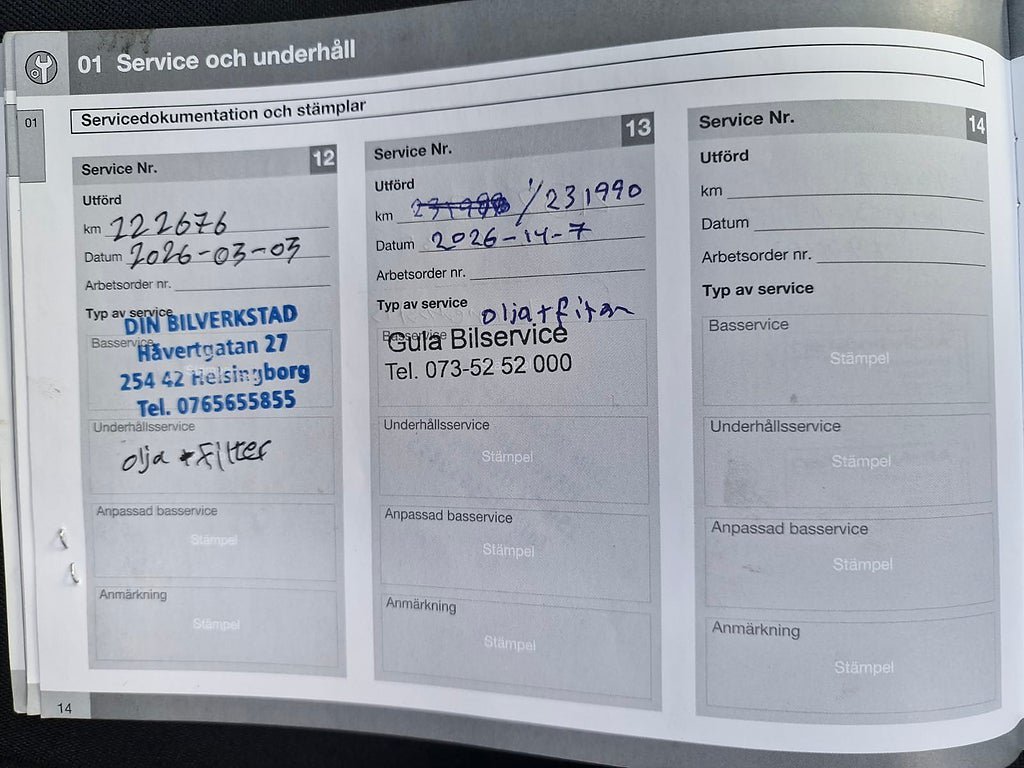 01 Service och underhåll
01
Servicedokumentation och stämplar
Service Nr. 12
Utförd
km 222676
Datum 2026-03-03
Arbetsorder nr.
Typ av service
DIN BILVERKSTAD
Basservice
Håvertgatan 27
254 42 Helsingborg
Tel. 0765655855
Underhållsservice
olja + Filter
Anpassad basservice
Stämpel
Anmärkning
Stämpel
Service Nr. 13
Utförd
km / 231990
Datum 2026-14-7
Arbetsorder nr.
Typ av service olja + fitan
Basservice
Gula Bilservice
Tel. 073-52 52 000
Underhållsservice
Stämpel
Anpassad basservice
Stämpel
Anmärkning
Stämpel
Service Nr. 14
Utförd
km
Datum
Arbetsorder nr.
Typ av service
Basservice
Stämpel
Underhållsservice
Stämpel
Anpassad basservice
Stämpel
Anmärkning
Stämpel
14